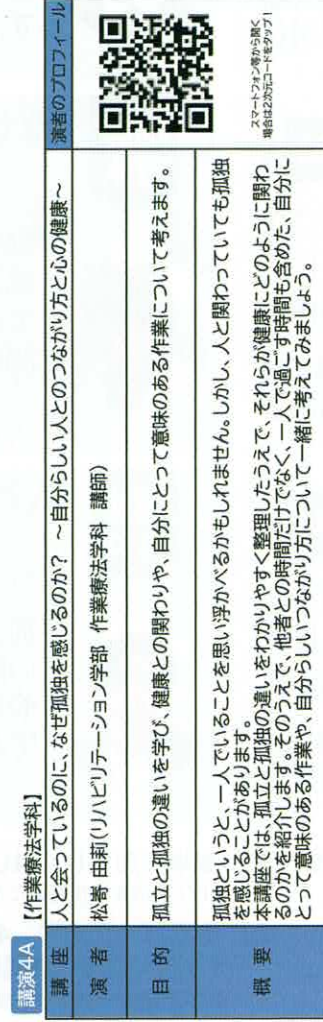 講演4A 【作業療法学科】
講座 人と会っているのに、なぜ孤独を感じるのか? ～自分らしい人とのつながり方と心の健康～ 演者のプロフィール
演者 松嵜 由莉(リハビリテーション学部 作業療法学科 講師)
目的 孤立と孤独の違いを学び、健康との関わりや、自分にとって意味のある作業について考えます。
概要 孤独というと、一人でいることを思い浮かべるかもしれません。しかし、人と関わっていても孤独
を感じることがあります。
本講座では、孤立と孤独の違いをわかりやすく整理したうえで、それらが健康にどのように関わ
るのかを紹介します。そのうえで、他者との時間だけでなく、一人で過ごす時間も含めた、自分に
とって意味のある作業や、自分らしいつながり方について一緒に考えてみましょう。
スマートフォン等から開く
場合は2次元コードをタップ!